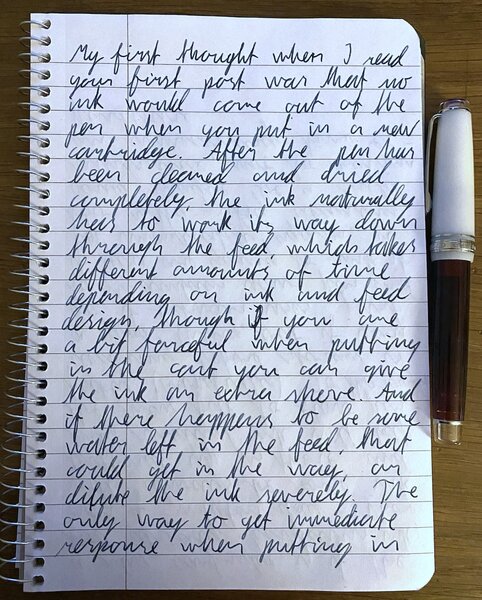 My first thought when I read
your first post was that no
ink would come out of the
pen when you put in a new
cartridge. After the pen has
been cleaned and dried
completely, the ink naturally
has to work its way down
through the feed, which takes
different amounts of time
depending on ink and feed
design, though if you are
a bit forceful when putting
in the cart you can give
the ink an extra shove. And
if there happens to be some
water left in the feed, that
could get in the way, or
dilute the ink severely. The
only way to get immediate
response when putting in